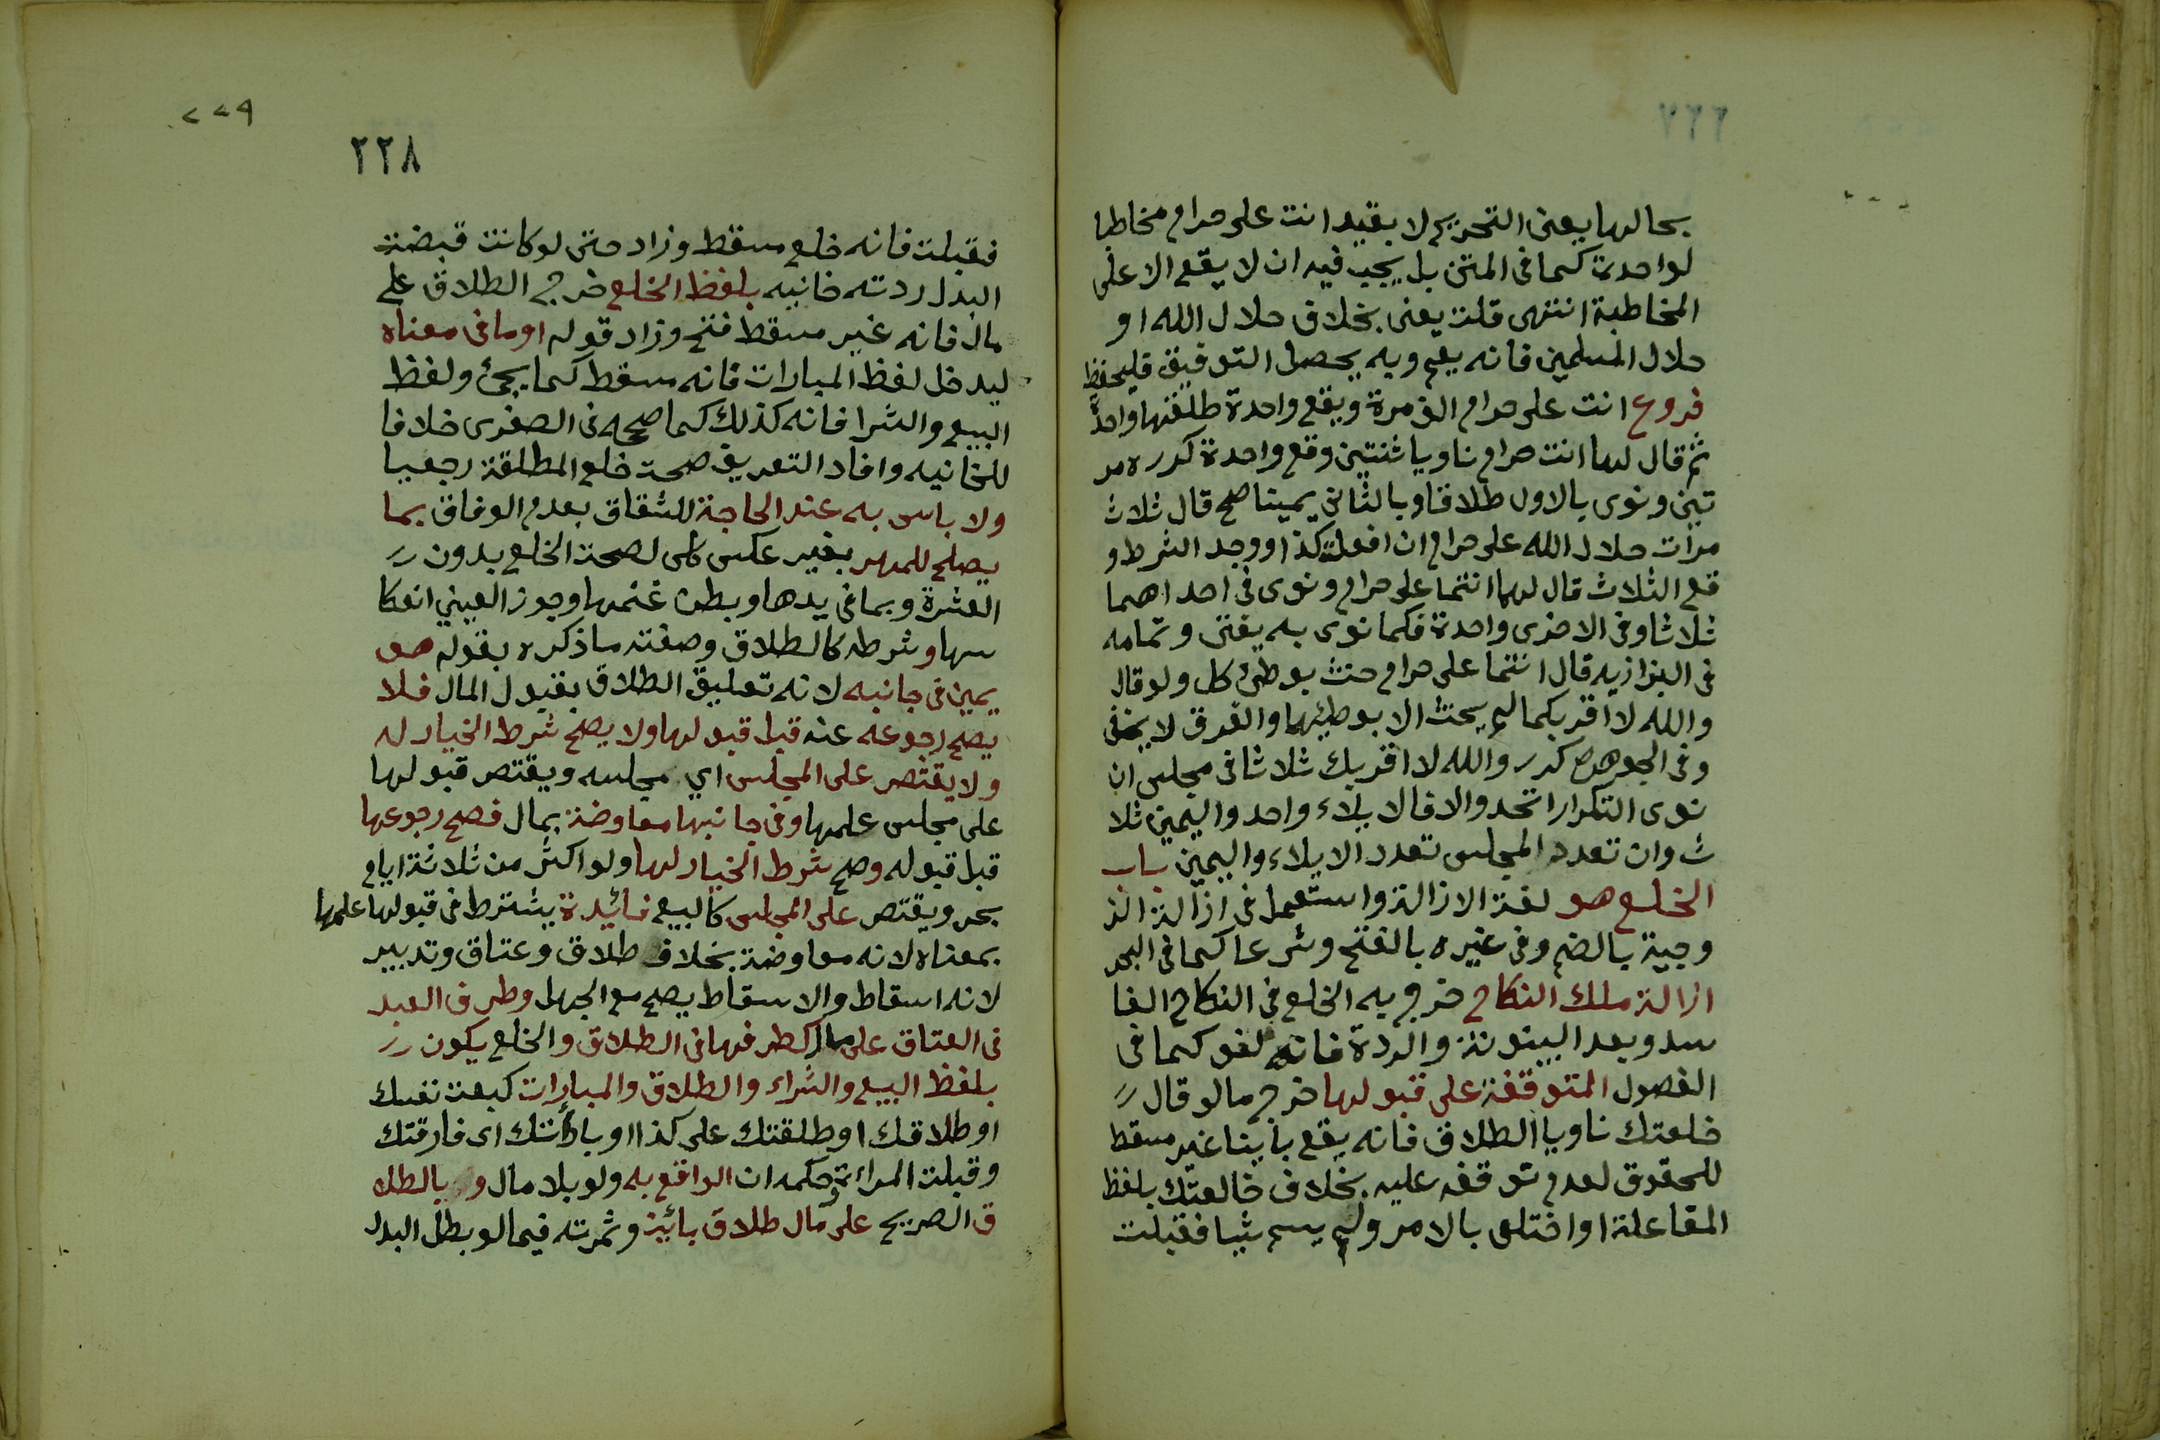 بحالها يعنى التحريم لا بقيد انت على حرام مخاطبا
لواحدة كما فى المتن بل يجب فيه ان لا يقع الا على
المخاطبة انتهى قلت يعنى بخلاف حلال الله او
حلال المسلمين فانه يعم وبه يحصل التوفيق فليحفظ
فروع انت على حرام الف مرة ويقع واحدة طلقتها واحدة
ثم قال لها انت حرام ناويا ثنتين وقع واحدة كرره مر
تين ونوى بالاول طلاقا وبالثانى يمينا صح قال ثلاث
مرات حلال الله على حرام ان افعلت كذا ووجد الشرط و
قع الثلاث قال لهما انتما على حرام ونوى فى احداهما
ثلاثا وفى الاخرى واحدة فكما نوى به يفتى وتمامه
فى البزازيه قال انتما على حرام حنث بوطئ كل ولو قال
والله لا اقربكما لم يحنث الا بوطئهما والفرق لا يخفى
وفى الجوهرة كرر والله لا اقربك ثلاثا فى مجلس ان
نوى التكرار اتحد والا فالايلاء واحد واليمين ثلا
ث وان تعدد المجلس تعدد الايلاء واليمين باب
الخلع هو لغة الازالة واستعمل فى ازالة الز
وجية بالضم وفى غيره بالفتح وشرعا كما فى البحر
ازالة ملك النكاح خرج به الخلع فى النكاح الفا
سد وبعد البينونة والردة فانه لغو كما فى
الفصول المتوقفة على قبولها خرج ما لو قال
خلعتك ناويا الطلاق فانه يقع باينا غير مسقط
للحقوق لعدم توقفه عليه بخلاف خالعتك بلفظ
المفاعلة او اختلعى بالامر ولم يسم شيا فقبلت
٢٢٩
٢٢٨
فقبلت فانه خلع مسقط وزاد حتى لو كانت قبضت
البدل ردته خانيه بلفظ الخلع خرج الطلاق على
مال فانه غير مسقط فتح وزاد قوله او ما فى معناه
ليدخل لفظ المبارات فانه مسقط كما يجئ ولفظ
البيع والشرا فانه كذلك كما صححه فى الصغرى خلافا
للخانيه وافاد التعريف صحة خلع المطلقة رجعيا
ولا باس به عند الحاجة للشقاق بعدم الوفاق بما
يصلح للمهر بغير عكس كلى لصحة الخلع بدون
العشرة وبما فى يدها وبطن غنمها وجوز العينى انعكا
سها وشرطه كالطلاق وصفته ما ذكره بقوله هو
يمين فى جانبه لانه تعليق الطلاق بقبول المال فلا
يصح رجوعه عنه قبل قبولها ولا يصح شرط الخيار له
ولا يقتصر على المجلس اي مجلسه ويقتصر قبولها
على مجلس علمها وفى جانبها معاوضة بمال فصح رجوعها
قبل قبوله وصح شرط الخيار لها ولو اكثر من ثلاثة ايام
بحر ويقتصر على المجلس كالبيع فائيدة يشترط فى قبولها علمها
بمعناه لانه معاوضة بخلاف طلاق وعتاق وتدبير
لانه اسقاط والاسقاط يصح مع الجهل وطرف العبد
فى العتاق على مال كطرفها فى الطلاق والخلع يكون
بلفظ البيع والشراء والطلاق والمبارات كبعت نفسك
او طلاقك او طلقتك على كذا او بارأتك اى فارقتك
وقبلت المراة وحكمه ان الواقع به ولو بلا مال و بالطلا
ق الصريح على مال طلاق بائين وثمرته فيما لو بطل البدل